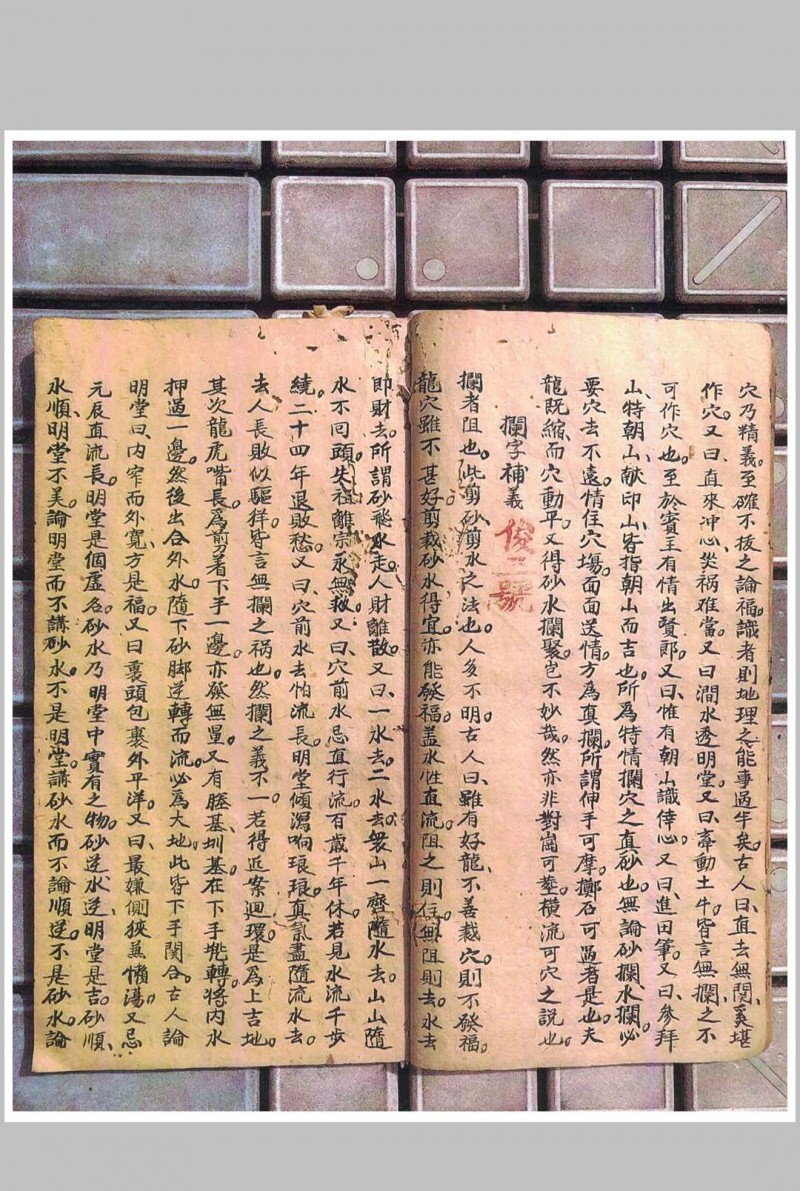 穴乃精義。至確不拔之論福。識者則地理之能事過半矣。古人曰、直去無関、奚堪
作穴。又曰、直來冲心、災禍难當。又曰澗水透明堂。又曰、牽動土牛。皆言無攔之不
可作穴也。至於賓主有情出賢郎。又曰、惟有朝山識倖心。又曰、進田筆。又曰、參拜
山、特朝山、献印山、皆指朝山而吉也。所為特情攔穴之真砂也。無論砂攔水攔。必
要穴去不遠。情住穴塲。面面送情。方為真攔。所謂伸手可摩。擲石可過者是也。夫
龍既縮、而穴動平。又得砂水攔聚。豈不妙哉。然亦非對崗可塟。橫流可穴之說也。
攔字補義
俊二號
攔者阻也。此剪砂剪水之法也。人多不明。古人曰、雖有好龍、不善裁穴。則不發福。
龍穴雖不甚好。剪裁砂水得宜。亦能發福。盖水性直流。阻之則住。無阻則去。水去
即財去。所謂砂飛水走。人財離散。又曰、一水去。二水去。衆山一齊隨水去。山山隨
水不囘頭。失福離宗永無救。又曰、穴前水忌直行流。百歲千年休。若見水流千步
繞。二十四年退敗愁。又曰、穴前水去怕流長。明堂傾瀉响琅琅。真氣盡隨流水去。
去人長敗似驅羊。皆言無攔之禍也。然攔之義不一。若得近案迴環。是為上吉地。
其次龍虎嘴長。為剪著下手一邊。亦發無量。又有塍基、圳基。在下手兠轉。將内水
押過一邊。然後出合外水。隨下砂脚逆轉而流。必為大地。此皆下手関合。古人論
明堂曰、内窄而外寬、方是福。又曰裏頭包裹外平洋。又曰、最嫌側狹並懶湯。又忌
元辰直流長。明堂是個虛名。砂水乃明堂中實有之物。砂逆水逆、明堂是吉。砂順
水順、明堂不美。論明堂而不講砂水。不是明堂。講砂水而不論順逆。不是砂水。論